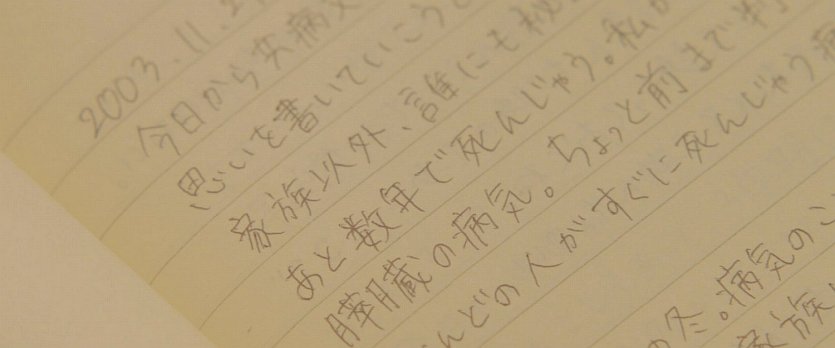 2003.11.2
今日から共病文
思いを書いていこうと
家族以外、誰にも秘
あと数年で死んじゃう。私が
膵臓の病気。ちょっと前まで判
んどの人がすぐに死んじゃう病
の冬。病気のこ
家族